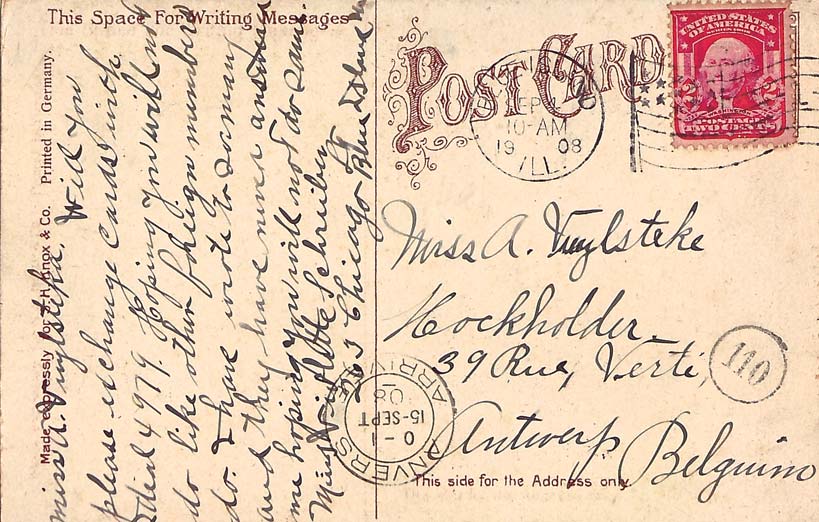 This Space For Writing Messages
POST CARD
UNITED STATES
OF AMERICA
WASHINGTON
2 2
POSTAGE
TWO CENTS
CHICAGO
SEP 4
10-AM
19 08
ILL.
Made expressly for J. H. Knox & Co. Printed in Germany.
Miss A. Vuylsteke, Will you
please exchange cards with
Ideal 4979. Hoping you will not
do like other foreign members
do. I have wrote to so many
and they have never answered
me hoping you will not do same.
Miss Violette Schreiber
Chicago St
Blue Island
Miss A. Vuylsteke
Hockholder
39 Rue, Verte,
Antwerp
Belguim
110
ANVERS
0-1
15-SEPT
08
ARRIVÉE
This side for the Address only.